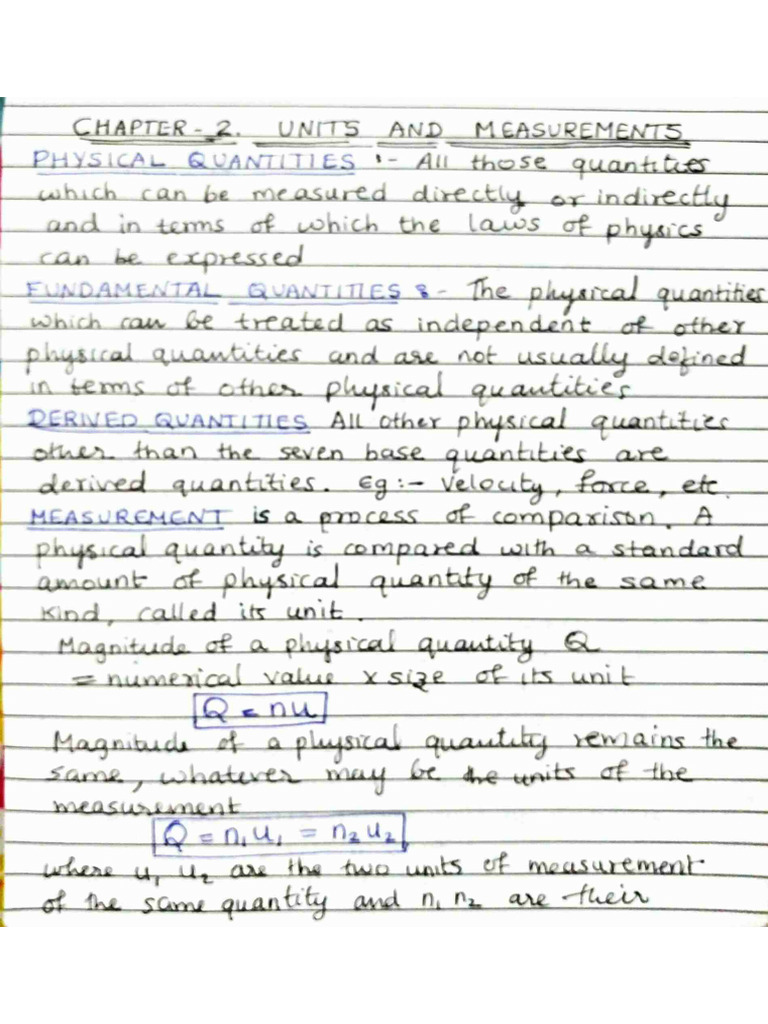 CHAPTER - 2. UNITS AND MEASUREMENTS
PHYSICAL QUANTITIES :- All those quantities
which can be measured directly or indirectly
and in terms of which the laws of physics
can be expressed
FUNDAMENTAL QUANTITIES :- The physical quantities
which can be treated as independent of other
physical quantities and are not usually defined
in terms of other physical quantities
DERIVED QUANTITIES All other physical quantities
other than the seven base quantities are
derived quantities. Eg :- Velocity, force, etc.
MEASUREMENT is a process of comparison. A
physical quantity is compared with a standard
amount of physical quantity of the same
kind, called its unit.
Magnitude of a physical quantity Q
= numerical value x size of its unit
Q = nu
Magnitude of a physical quantity remains the
same, whatever may be the units of the
measurement
Q = n₁u₁ = n₂u₂,
where u₁ u₂ are the two units of measurement
of the same quantity and n₁ n₂ are their